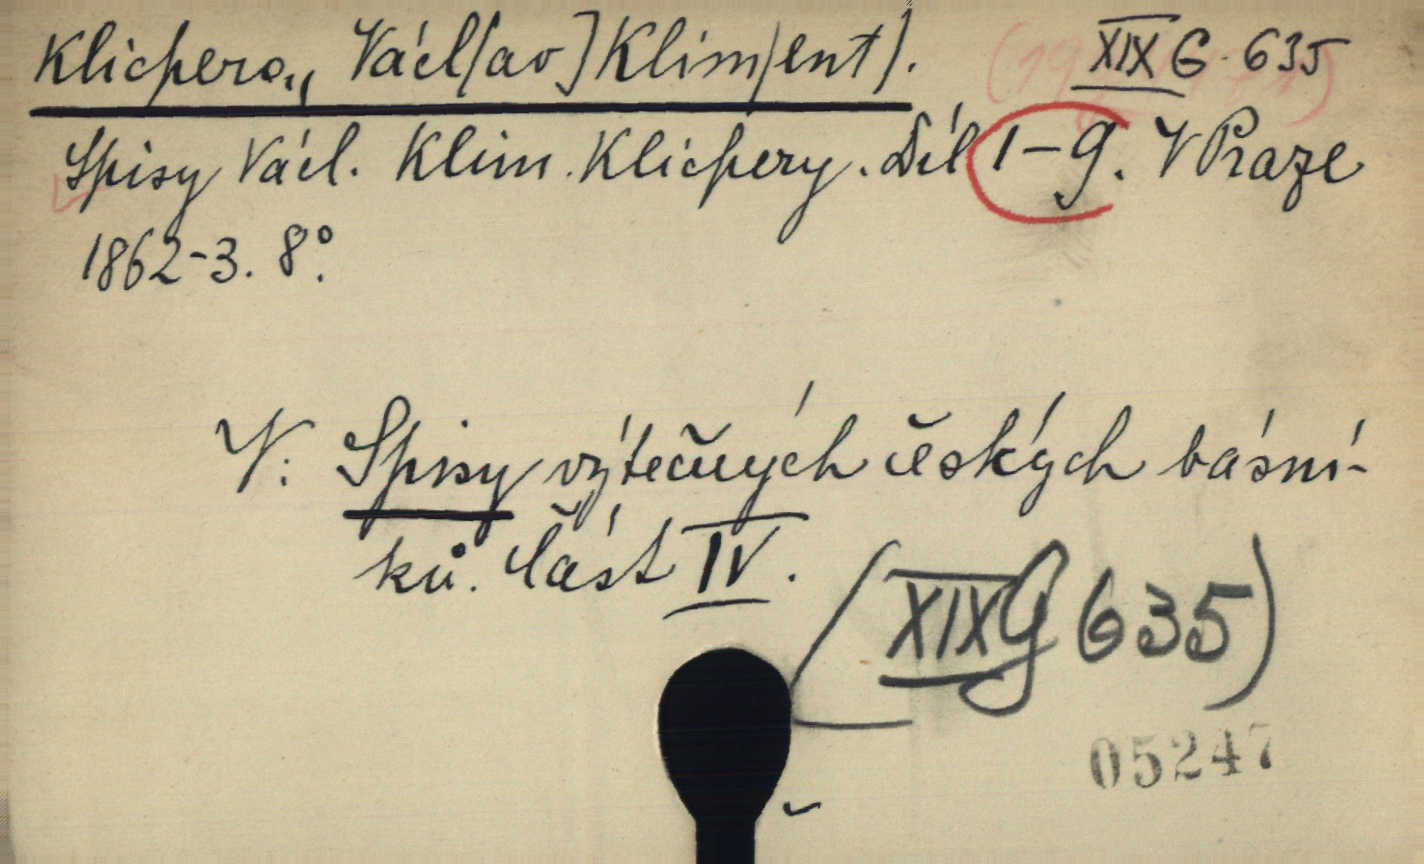 Klicpera,, Václ[av] Klim[ent]. XIX G. 635
Spisy Václ. Klim. Klicpery. Díl 1-9. V Praze
1862-3. 8°.
V: Spisy výtečných českých básní-
ků. Část IV.
(XIX G 635)
05247